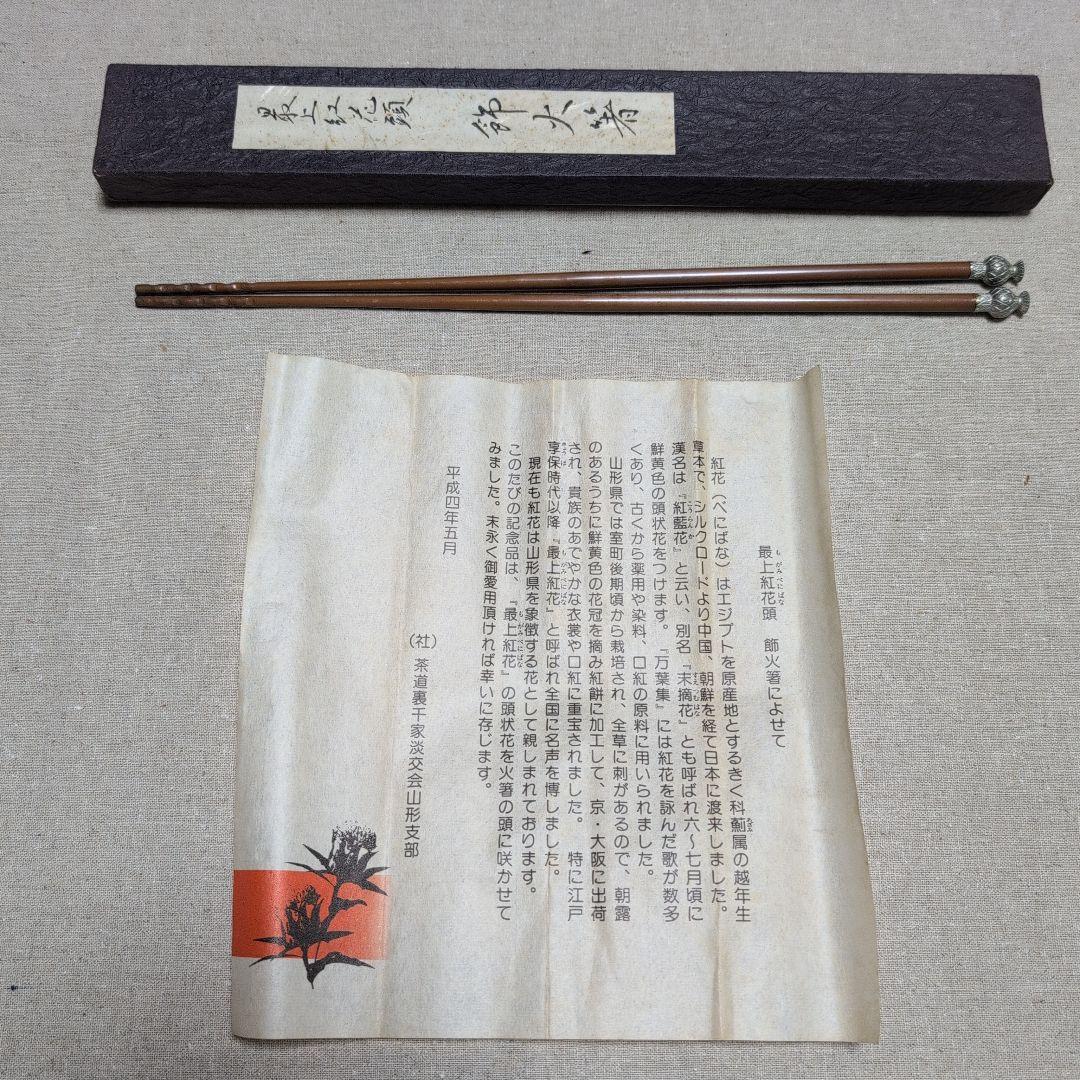 最上紅花頭
飾火箸
最上紅花頭　飾火箸によせて
紅花（べにばな）はエジプトを原産地とするきく科薊属の越年生
草本で、シルクロードより中国、朝鮮を経て日本に渡来しました。
漢名は『紅藍花』と云い、別名『末摘花』とも呼ばれ六～七月頃に
鮮黄色の頭状花をつけます。『万葉集』には紅花を詠んだ歌が数多
くあり、古くから薬用や染料、口紅の原料に用いられました。
山形県では室町後期頃から栽培され、全草に刺があるので、朝露
のあるうちに鮮黄色の花冠を摘み紅餅に加工して、京・大阪に出荷
され、貴族のあでやかな衣裳や口紅に重宝されました。　特に江戸
享保時代以降『最上紅花』と呼ばれ全国に名声を博しました。
現在も紅花は山形県を象徴する花として親しまれております。
このたびの記念品は、『最上紅花』の頭状花を火箸の頭に咲かせて
みました。末永く御愛用頂ければ幸いに存じます。
平成四年五月
（社）茶道裏千家淡交会山形支部